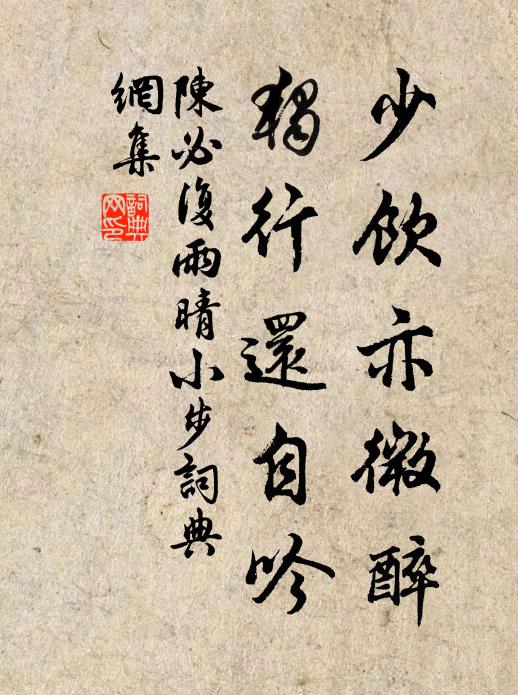 少飲亦微醉
獨行還自吟
陳必復雨晴小步詞典
網集
詞典
网印